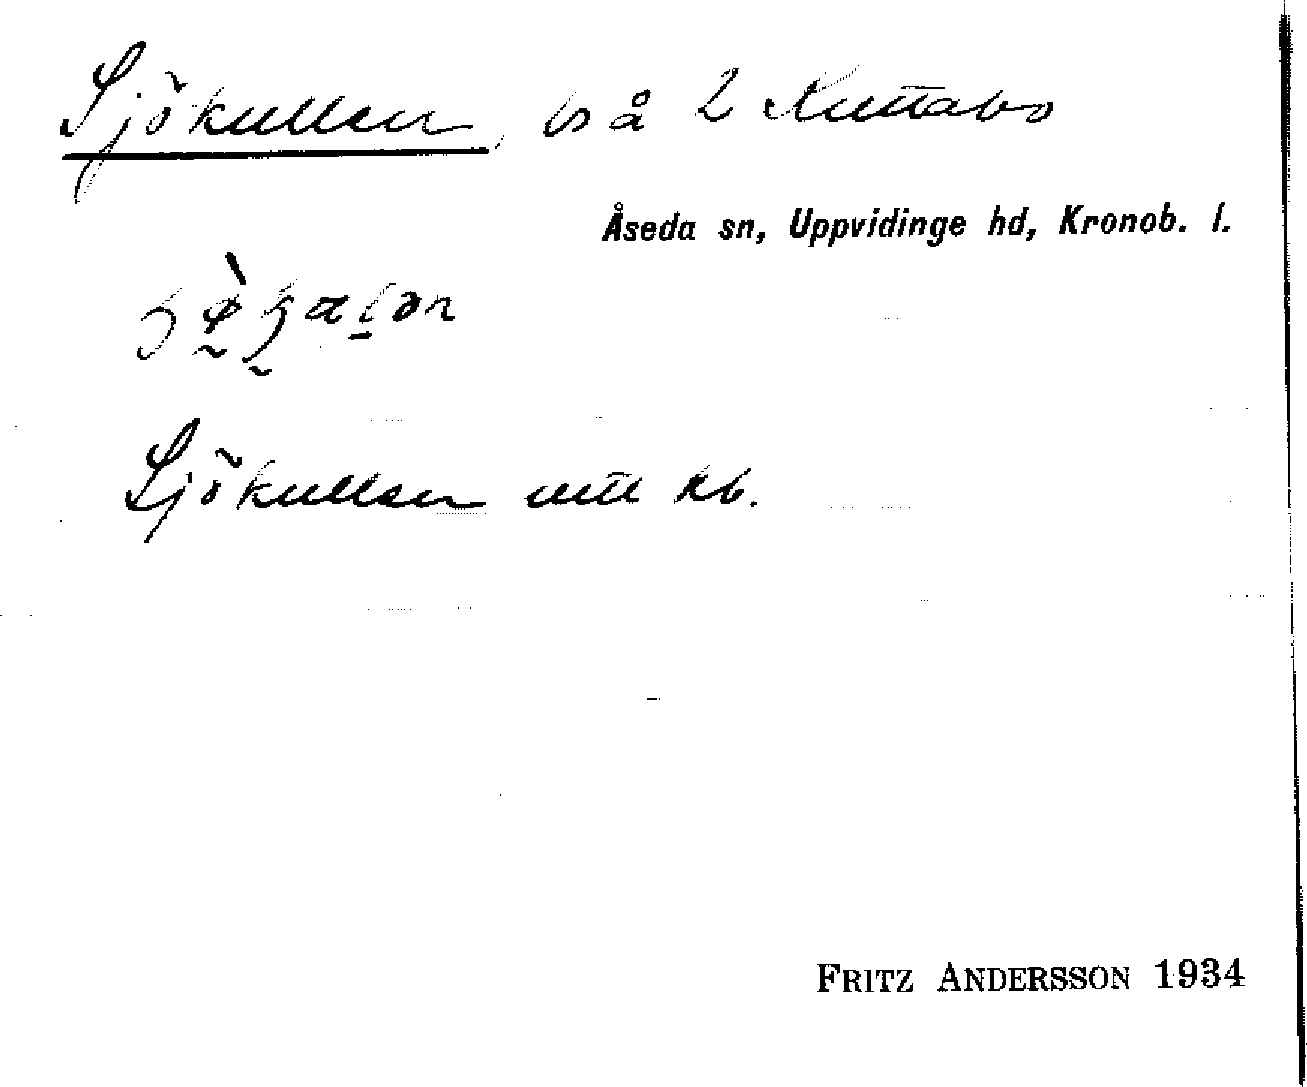 Sjökullen, bs å 2 Kuttabo
Åseda sn, Uppvidinge hd, Kronob. l.
Sjökullen utt kb.
FRITZ ANDERSSON 1934